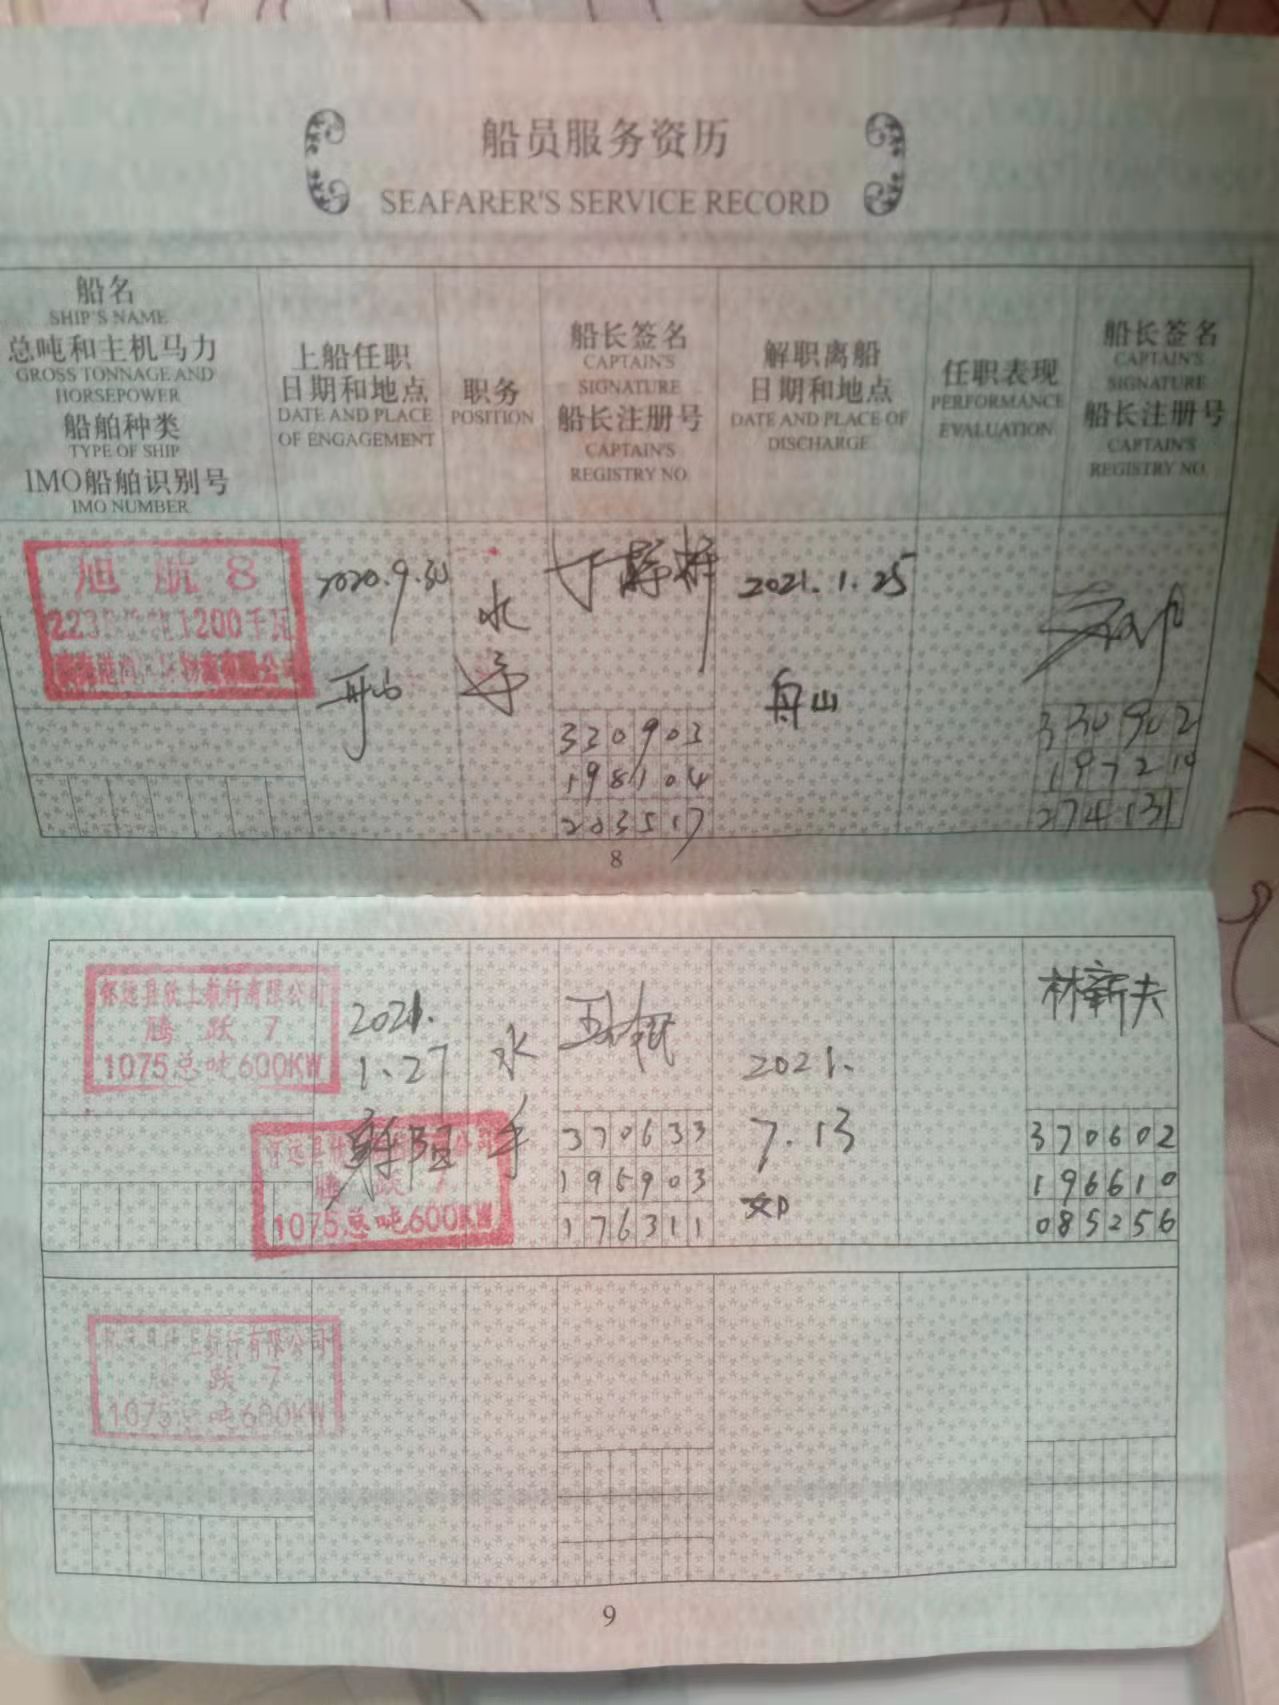 船员服务资历
SEAFARER'S SERVICE RECORD
船名
SHIP'S NAME
总吨和主机马力
GROSS TONNAGE AND
HORSEPOWER
船舶种类
TYPE OF SHIP
IMO船舶识别号
IMO NUMBER
上船任职
日期和地点
DATE AND PLACE
OF ENGAGEMENT
职务
POSITION
船长签名
CAPTAIN'S
SIGNATURE
船长注册号
CAPTAIN'S
REGISTRY NO.
解职离船
日期和地点
DATE AND PLACE OF
DISCHARGE
任职表现
PERFORMANCE
EVALUATION
船长签名
CAPTAIN'S
SIGNATURE
船长注册号
CAPTAIN'S
REGISTRY NO.
旭航8
1200千瓦
2020.9.30
舟山
水
手
330903
198104
203517
2021.1.25
舟山
330902
197210
274131
8
有限公司
腾跃7
1075总吨600KW
2021.
1.27
水
手
腾跃7
1075总吨600KW
370633
195903
176311
2021.
7.13
林新夫
370602
196610
085256
航行有限公司
跃7
1075总吨600KW
9